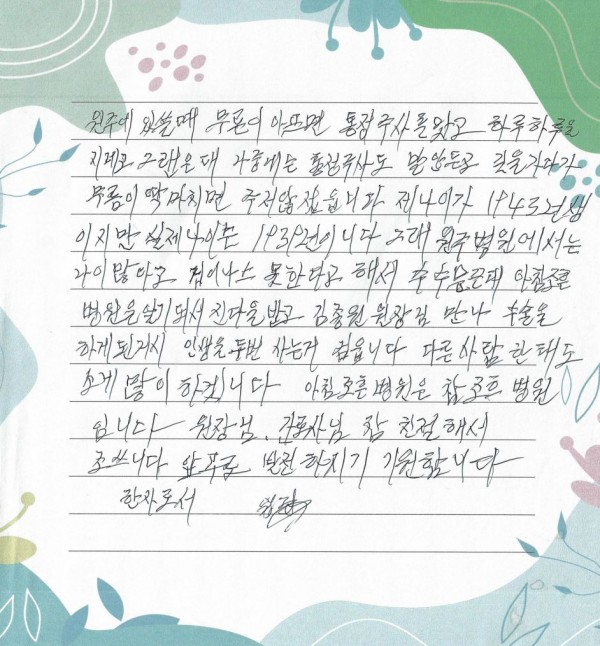 원주에 있쓸때 무릎이 아프면 통점주사를 맞고 하루하루을
지내고 그랜온대 나중에는 통점주사도 말안든고 길을가다가
무릎이 딱 마치면 주저않잖습니다 제나이가 1943년생
이지만 실제나이는 1939년이니다 그대 원주병원에서는
나이많아고 못한다고 해서 아침조흔
병원을알기돼서 진다을받고 김종원 원장님 만나 수술을
하게된거시 인생을두번 사는거 갔읍니다 다른사람한태도
소게 많이 하겠니다 아침조흔병원은 참조흔 병원
임니다 원장님, 간호사님 참 친절해서
조쓰니다 앞무궁 발전하시기 기원합니다
한자로서